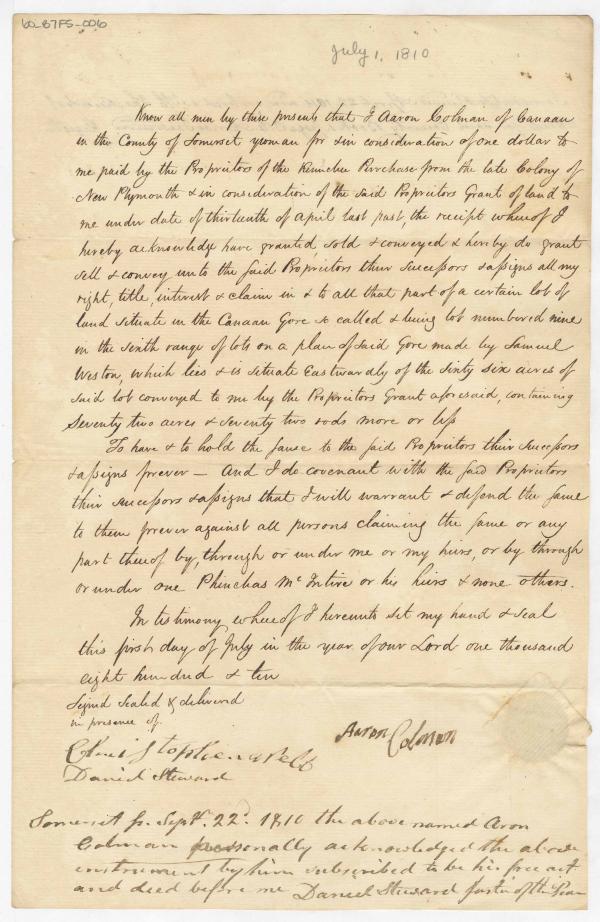 60-87FS-006
July 1, 1810
Know all men by these presents that I Aaron Colman of Canaan
in the County of Somerset, yeoman for & in consideration of one dollar to
me paid by the Proprietors of the Kennebec Purchase from the late Colony of
New Plymouth & in consideration of the said Proprietors Grant of land to
me under date of thirteenth of April last past, the receipt whereof I
hereby acknowledge have granted, sold & conveyed & hereby do grant
sell & convey unto the said Proprietors their successors & assigns all my
right, title, interest & claim in & to all that part of a certain lot of
land situate in the Canaan Gore so called & being lot numbered nine
in the sixth range of lots on a plan of said Gore made by Samuel
Weston, which lies & is situate Eastwardly of the sixty six acres of
said lot conveyed to me by the Proprietors Grant aforesaid, containing
Seventy two acres & seventy two rods more or less
To have & to hold the same to the said Proprietors their successors
& assigns forever — And I do covenant with the said Proprietors
their successors & assigns that I will warrant & defend the same
to them forever against all persons claiming the same or any
part thereof by, through or under me or my heirs, or by through
or under one Phinehas McIntire or his heirs & none others.
In testimony whereof I hereunto set my hand & seal
this first day of July in the year of our Lord one thousand
eight hundred & ten
Signed Sealed & delivered
in presence of.
Aaron Colman
Daniel Steward
Somerset ss. Sept. 22d. 1810 the above named Aron
Colman personally acknowledged the above
instrument by him subscribed to be his free act
and deed before me Daniel Steward Justice of the Peace